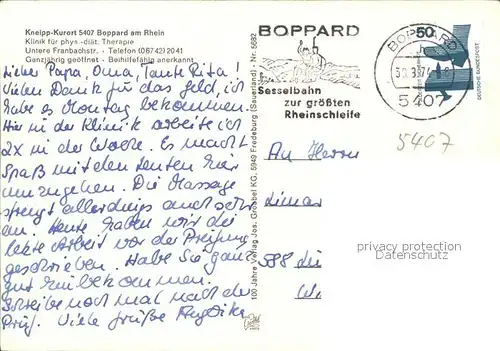 Kneipp-Kurort 5407 Boppard am Rhein
Klinik für phys.-diät. Therapie
Untere Franbachstr. · Telefon (06742) 2041
Ganzjährig geöffnet - Beihilfefähig anerkannt
Liebe Papa, Oma, Tante Rita!
Vielen Dank für das Geld, ich
habe es Montag bekommen.
Hier in der Klinik arbeite ich
2x in der Woche. Es macht
Spaß mit den Leuten hier
umzugehen. Die Massage
strengt allerdings auch sehr
an. Heute haben wir die
letzte Arbeit vor der Prüfung
geschrieben. Habe Sie ganz
gut hinbekommen.
Schreibe noch mal nach der
Prüf. Viele Grüße
100 Jahre Verlag Jos. Grobbel KG, 5949 Fredeburg (Sauerland), Nr. 5682
BOPPARD
Sesselbahn
zur größten
Rheinschleife
BOPPARD
5407
50
DEUTSCHE BUNDESPOST
5407
An Herrn
privacy protection
Datenschutz
588